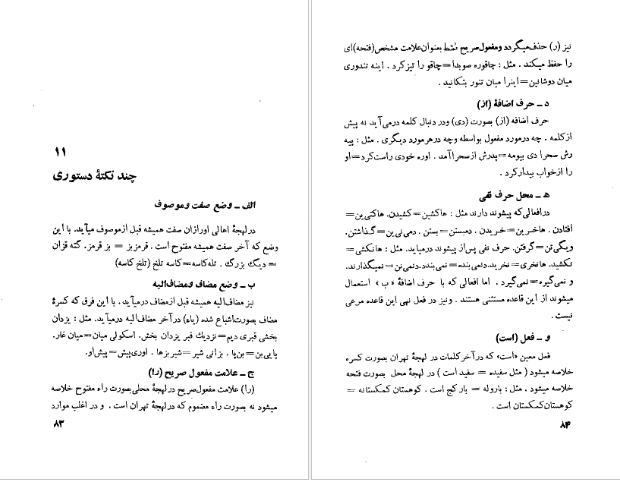 ۱۱
چند نکتهٔ دستوری
الف ــ وضع صفت وموصوف
در لهجهٔ اهالی اورازان صفت همیشه قبل ازموصوف میآید. با این
وضع که آخر صفت همیشه مفتوح است . قرمز بز = بز قرمز. گته قزان
= دیگ بزرگ . تله کاسه = کاسه تلخ (تلخ کاسه)
ب ــ وضع مضاف ومضاف‌الیه
نیز مضاف‌الیه همیشه قبل ازمضاف میآید . با این فرق که کسرهٔ
مضاف بصورت اشباع شده (یاء) در آخر مضاف‌الیه درمیآید. مثل : یزدان
بخشی قبری دیم = نزدیك قبر یزدان بخش. اسکولی میان = میان غار.
بزانی شیر = شیر بزها . اوری پیش = پیش او.
ج ــ علامت مفعول صریح (را)
(را) علامت مفعول صریح در لهجهٔ محلی بصورت راء مفتوح خلاصه
میشود نه بصورت راء مضموم که در لهجهٔ تهران است . و در اغلب موارد
۸۳
نیز (ر) حذف میگردد و مفعول صریح فقط بعنوان علامت مشخص (فتحه)ای
را حفظ میکند . مثل : چاقوره صوبدا = چاقو را تیز کرد . اینه تندوری
میان دوشانین = اینرا میان تنور بتکانید .
د ــ حرف اضافهٔ (از)
حرف اضافه (از) بصورت (دی) ودر دنبال کلمه درمی‌آید. نه پیش
از کلمه . چه درمورد مفعول بواسطه وچه درهرمورد دیگری . مثل : پیه
رش سحرا دی بیومه = پدرش از سحرا آمد . اوره خودی راست کرد = او
را ازخواب بیدار کرد .
ه ــ محل حرف نفی
درافعالی که پیشوند دارند مثل : هاکشین = کشیدن. هاکتی‌بن =
افتادن . هاخرین = خریدن . دمبستن = بستن . دمی‌نی‌بن = گذاشتن.
ویگی‌تن = گرفتن. حرف نفی پس‌از پیشوند درمیاید. مثل : هانکشی =
نکشید. هانخری = نخرید. دانمی‌بنده = نمی‌بندد. دنمی‌نی‌بن = نمیگذارند.
و نمی‌گیره = نمی‌گیرد . اما افعالی که با حرف اضافهٔ « ب » استعمال
میشوند از این قاعده مستثنی هستند . ونیز در فعل نهی این قاعده مرعی
نیست .
و ــ فعل (است)
فعل معین «است» که در آخر کلمات در لهجهٔ تهران بصورت کسره
خلاصه میشود ( مثل : سفیده = سفید است ) در لهجهٔ محل بصورت فتحه
خلاصه میشود . مثل : باروله = بار کج است . کوهستان کمکستانه =
کوهستان کمکستان است .
۸۴